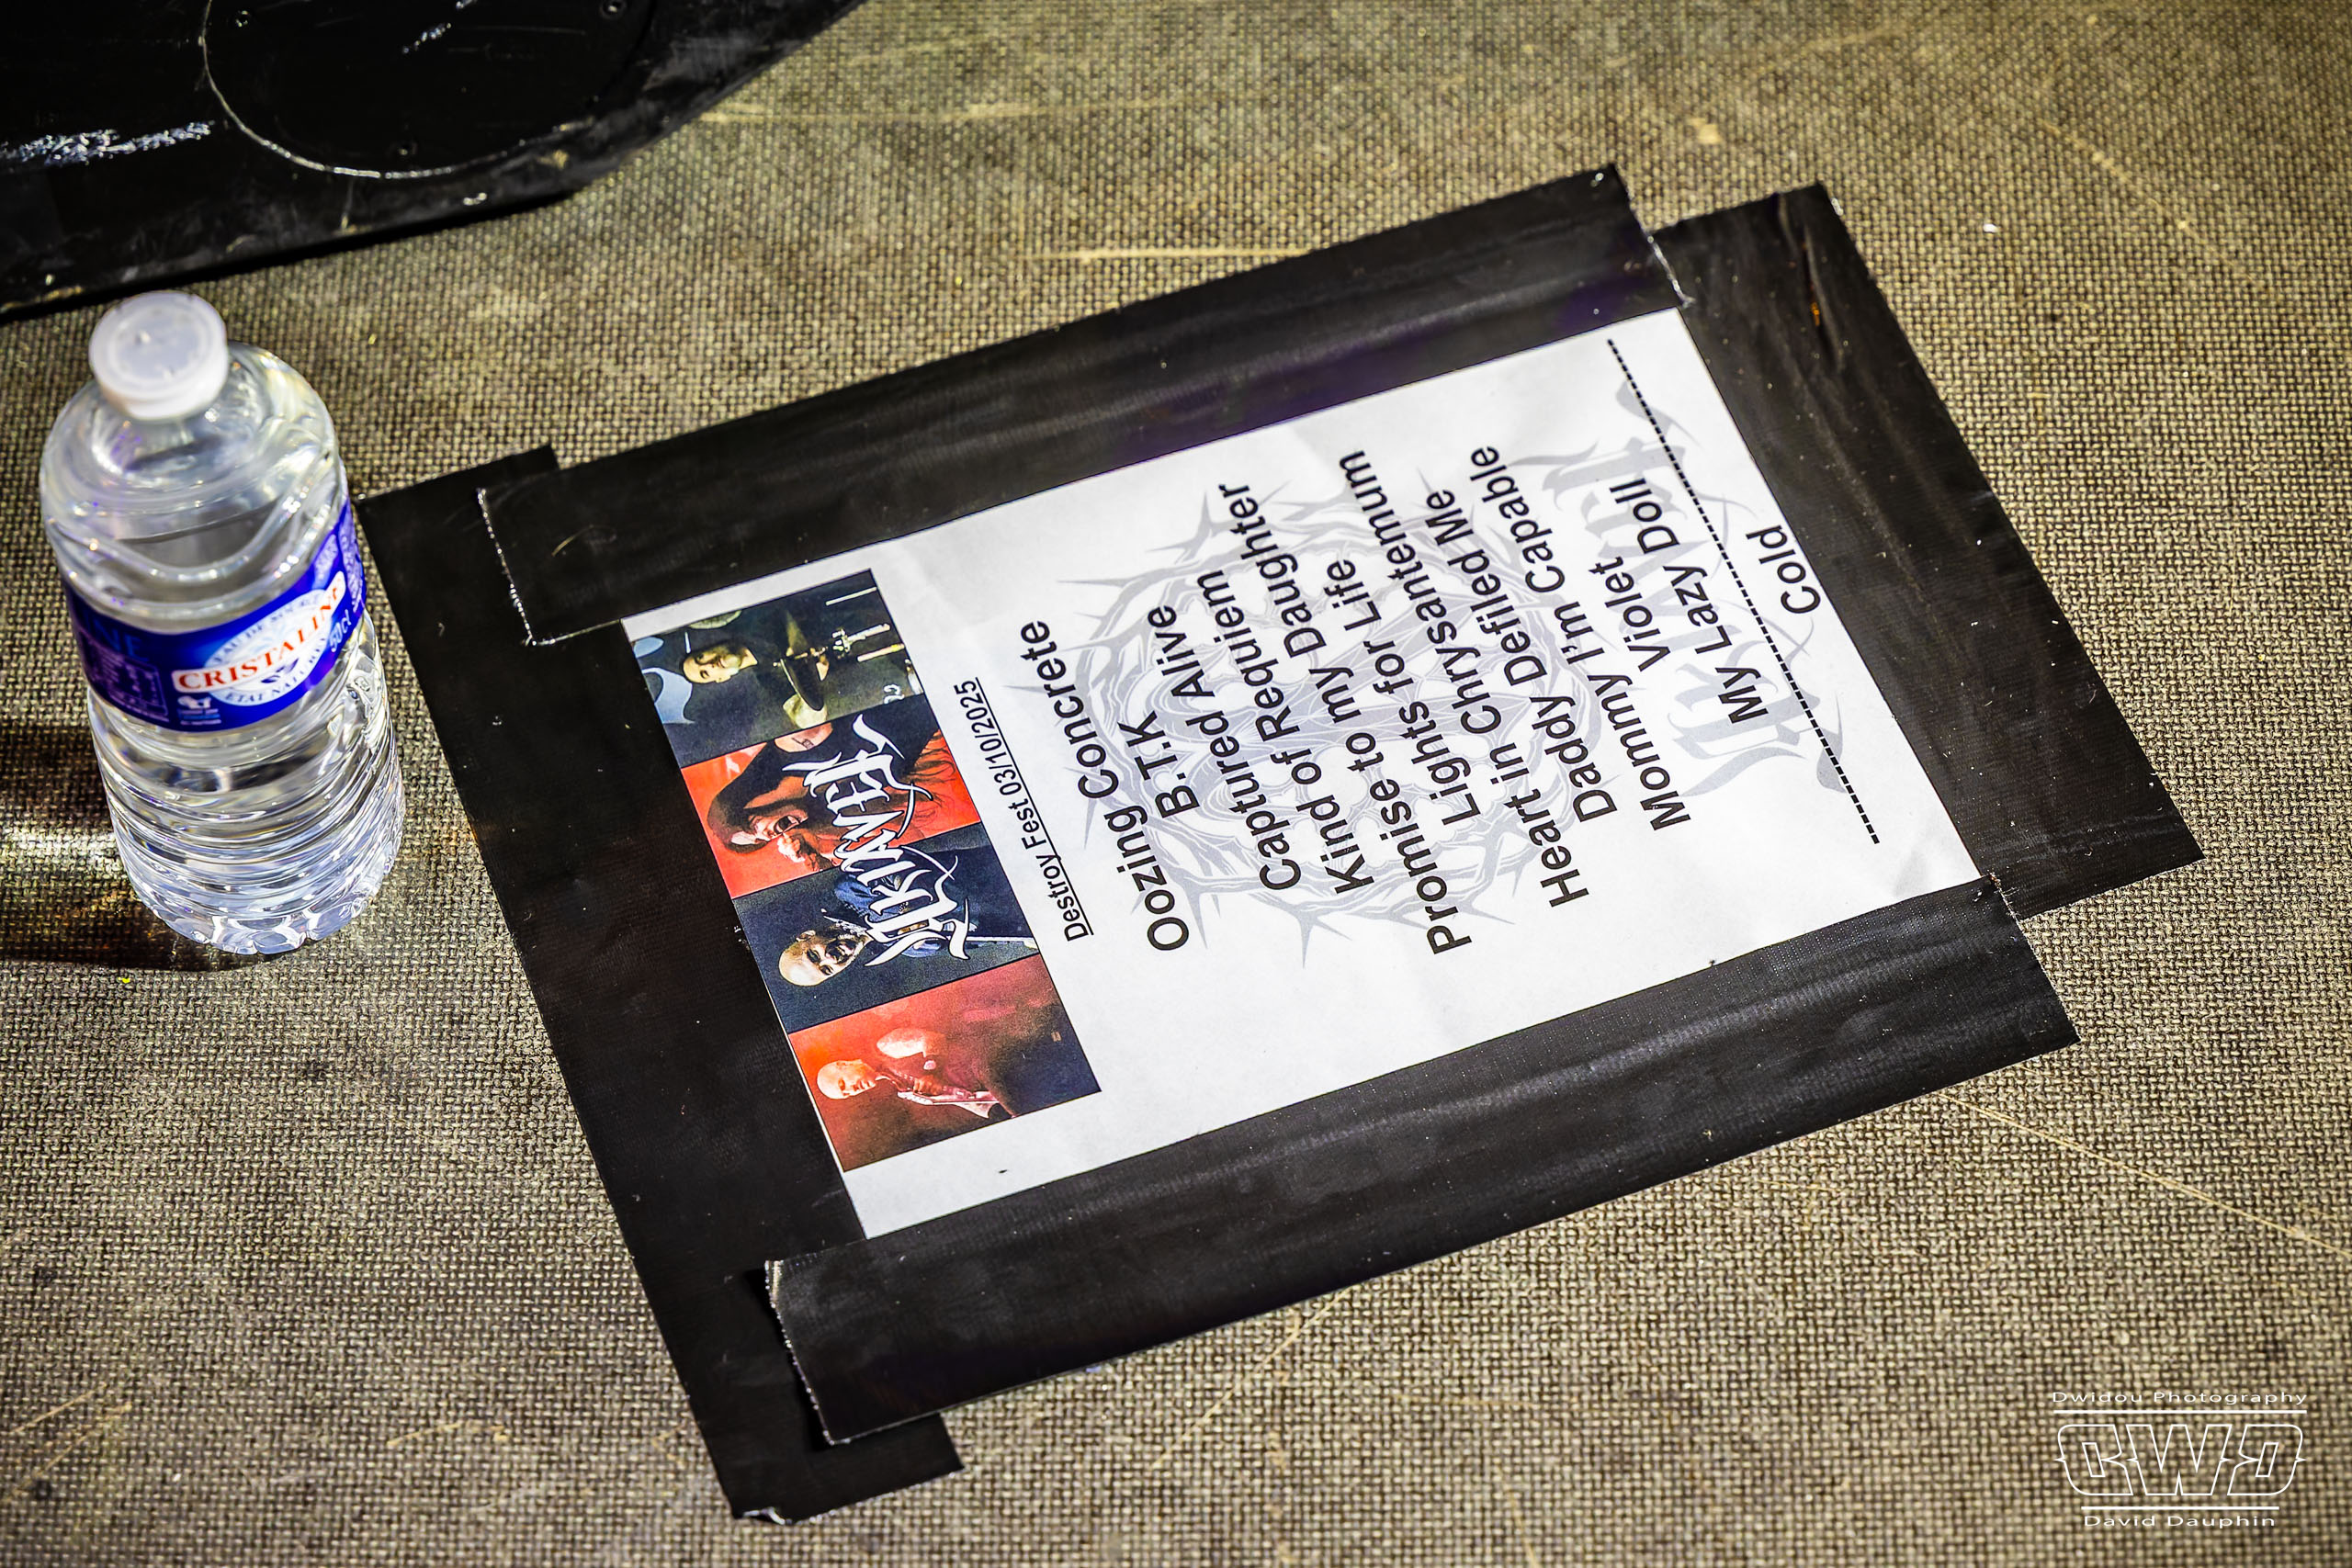 CRISTALINE
AKIAVEL
Destroy Fest 03/10/2025
Oozing Concrete
B.T.K
Captured Alive
Kind of Requiem
Promise to my Daughter
Lights for Life
Heart in Chrysantemum
Daddy Defiled Me
Mommy I'm Capable
Violet
My Lazy Doll
--------------------------------
Cold
Dwidou Photography
DWD
David Dauphin